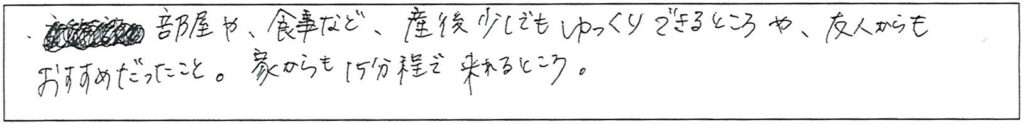 ・部屋や、食事など、産後少しでもゆっくりできるところや、友人からも
おすすめだったこと。家からも15分程で来れるところ。